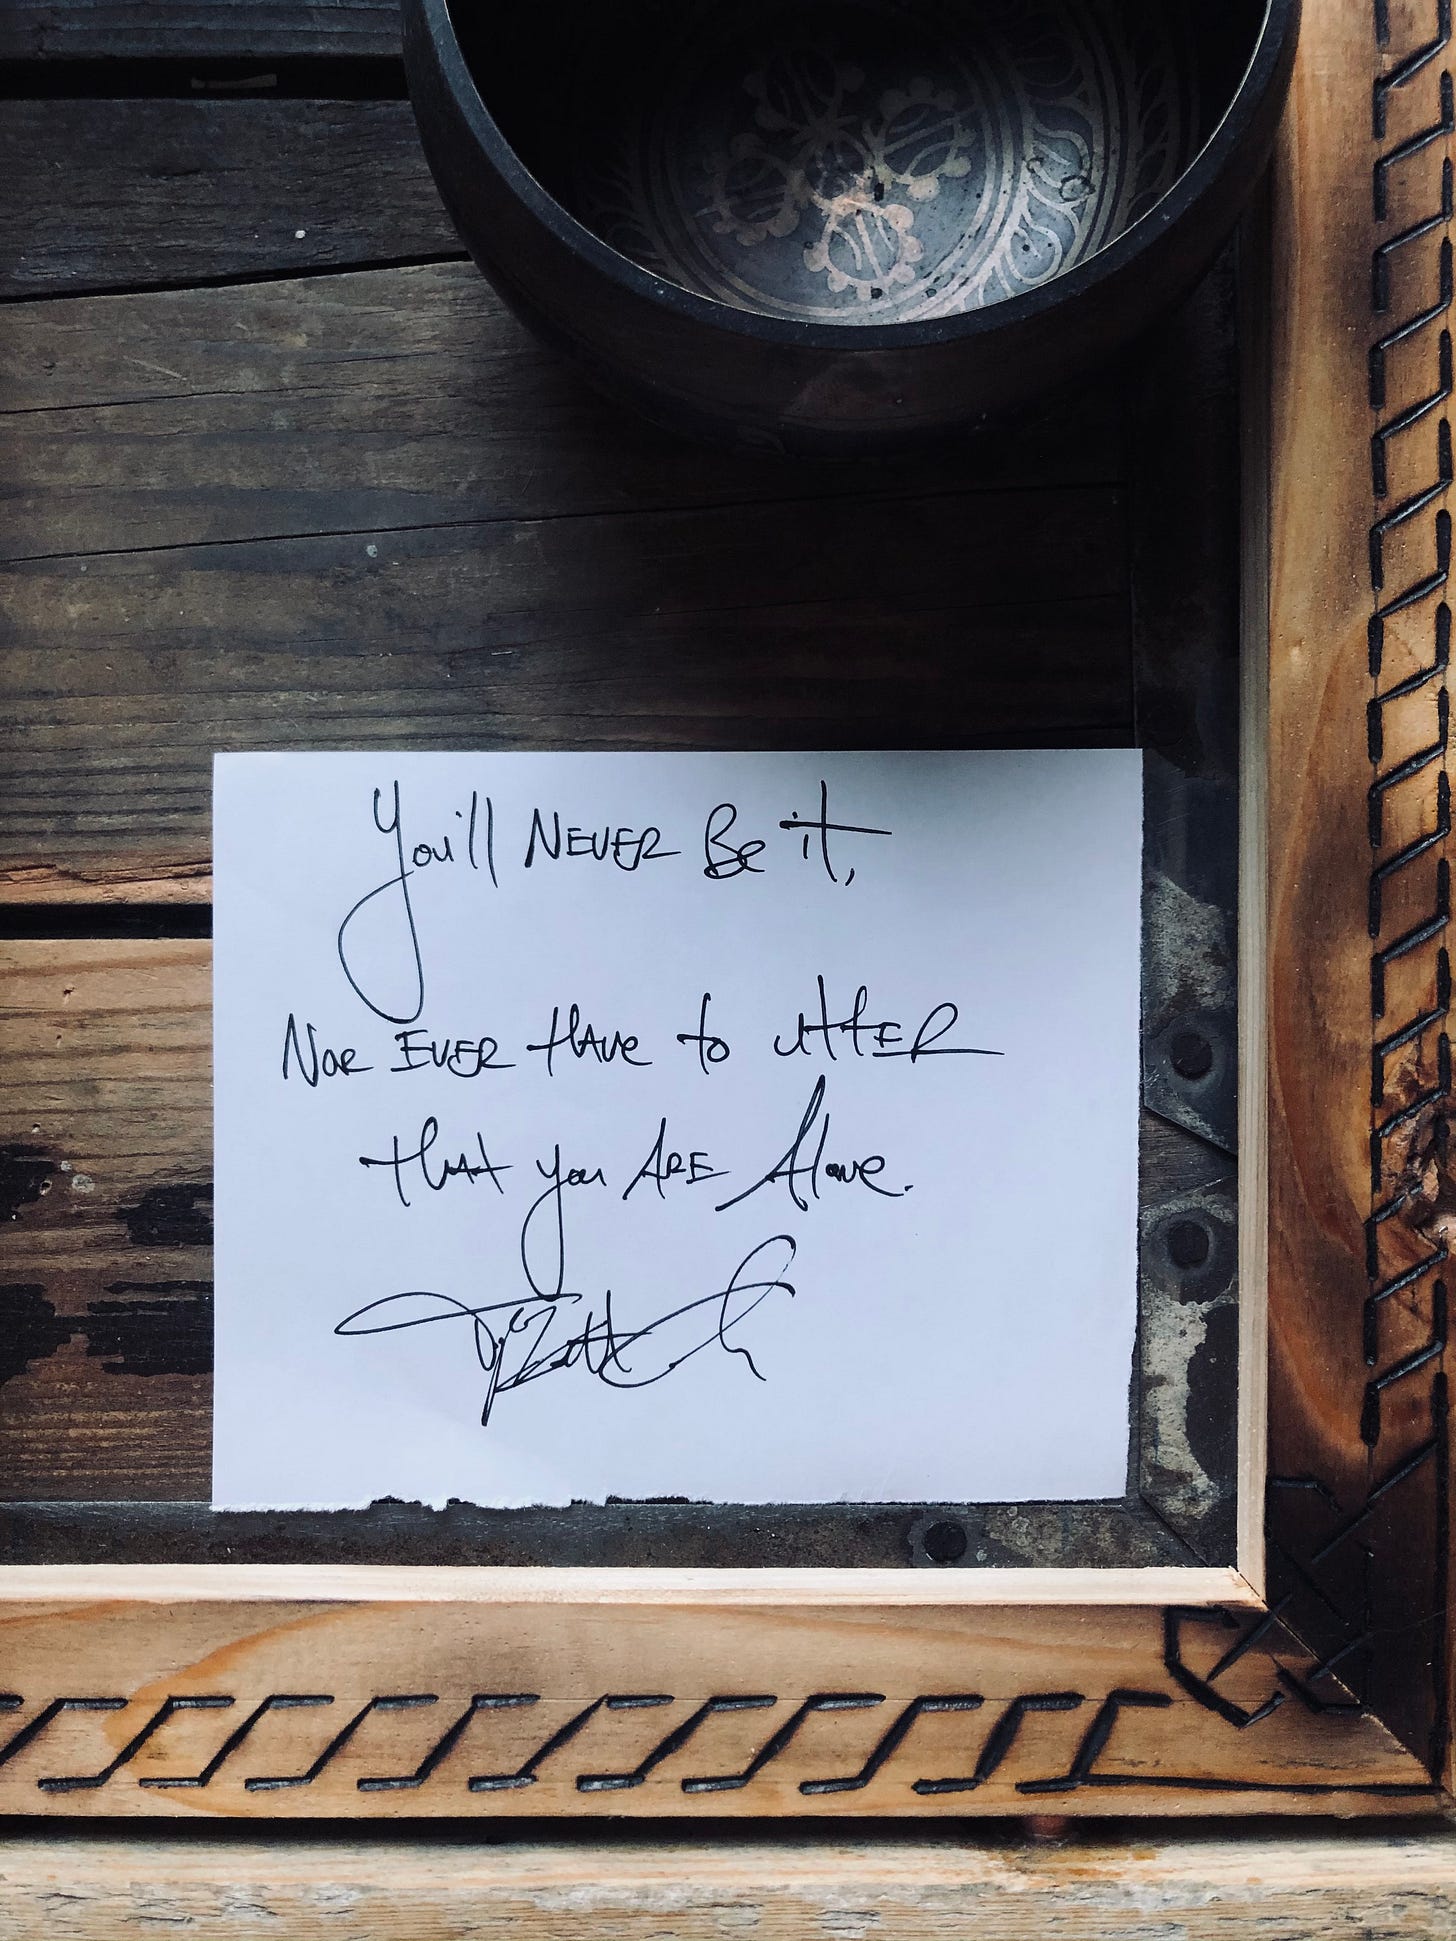 You'll NEVER Be it,
NOR EVER HAVE to UttER
tHAt you ARE Alone.